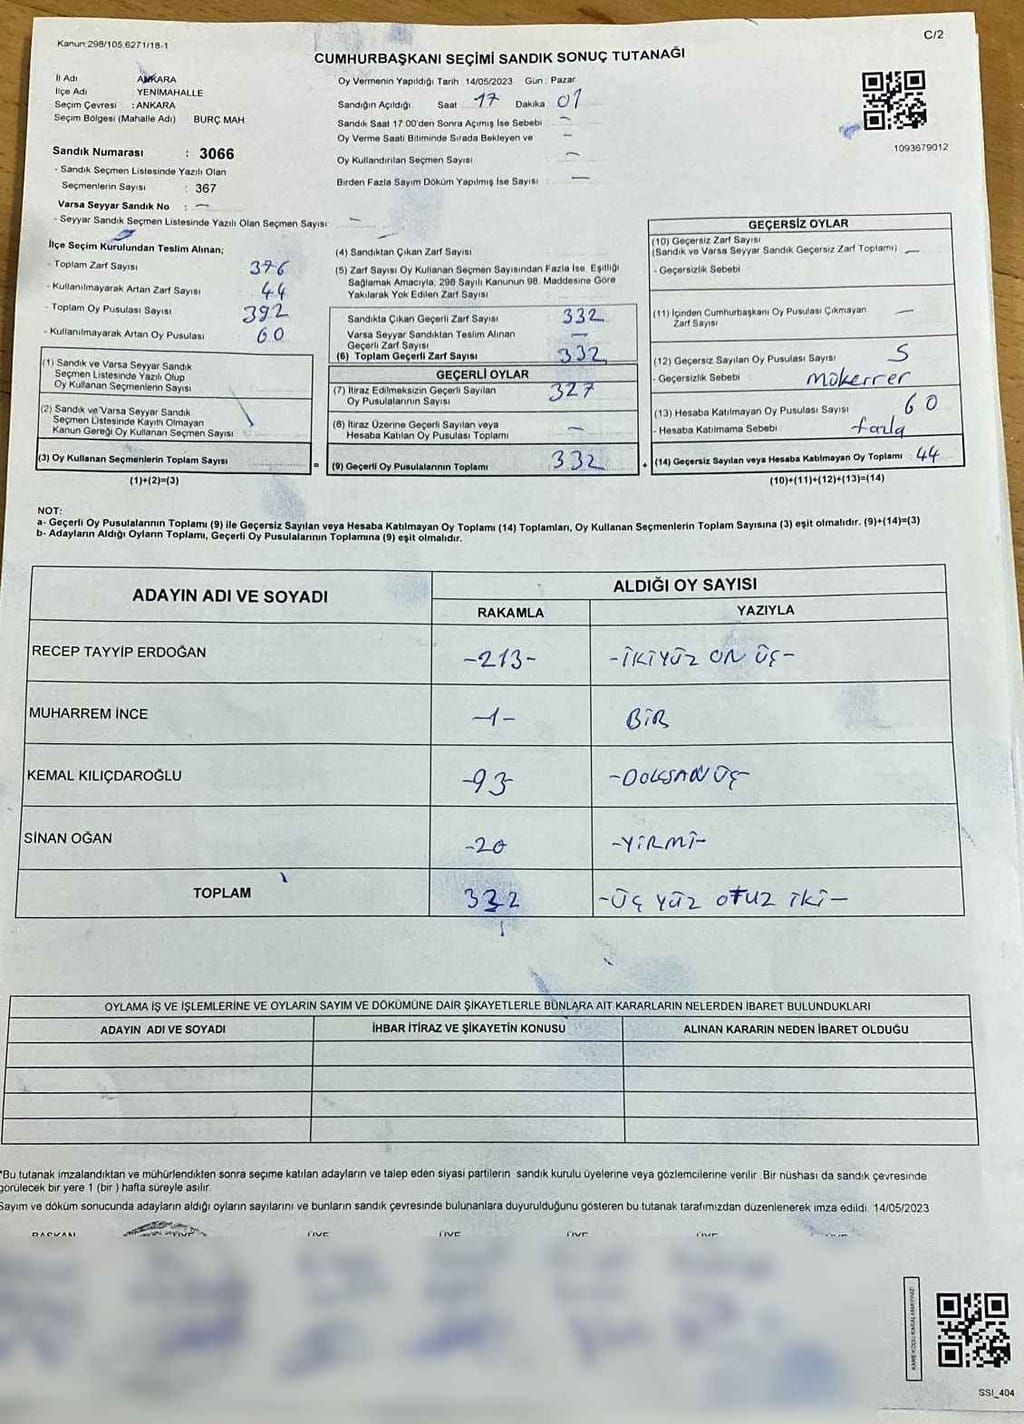 Kanun:298/105,6271/18-1
C/2
CUMHURBAŞKANI SEÇİMİ SANDIK SONUÇ TUTANAĞI
İl Adı ANKARA
İlçe Adı YENİMAHALLE
Seçim Çevresi : ANKARA
Seçim Bölgesi (Mahalle Adı) BURÇ MAH.
Oy Vermenin Yapıldığı Tarih : 14/05/2023 Gün : Pazar
Sandığın Açıldığı Saat 17 Dakika 01
Sandık Saat 17:00'den Sonra Açılmış İse Sebebi : —
Oy Verme Saati Bitiminde Sırada Bekleyen ve —
Oy Kullandırılan Seçmen Sayısı —
Birden Fazla Sayım Döküm Yapılmış İse Sayısı : —
1093679012
Sandık Numarası : 3066
- Sandık Seçmen Listesinde Yazılı Olan
Seçmenlerin Sayısı : 367
Varsa Seyyar Sandık No : —
- Seyyar Sandık Seçmen Listesinde Yazılı Olan Seçmen Sayısı : —
İlçe Seçim Kurulundan Teslim Alınan;
- Toplam Zarf Sayısı 376
- Kullanılmayarak Artan Zarf Sayısı 44
- Toplam Oy Pusulası Sayısı 392
- Kullanılmayarak Artan Oy Pusulası 60
(1) Sandık ve Varsa Seyyar Sandık
Seçmen Listesinde Yazılı Olup
Oy Kullanan Seçmenlerin Sayısı
(2) Sandık ve Varsa Seyyar Sandık
Seçmen Listesinde Kayıtlı Olmayan
Kanun Gereği Oy Kullanan Seçmen Sayısı
(3) Oy Kullanan Seçmenlerin Toplam Sayısı
(1)+(2)=(3)
(4) Sandıktan Çıkan Zarf Sayısı
(5) Zarf Sayısı Oy Kullanan Seçmen Sayısından Fazla İse, Eşitliği
Sağlamak Amacıyla; 298 Sayılı Kanunun 98. Maddesine Göre
Yakılarak Yok Edilen Zarf Sayısı
Sandıkta Çıkan Geçerli Zarf Sayısı 332
Varsa Seyyar Sandıktan Teslim Alınan
Geçerli Zarf Sayısı —
(6) Toplam Geçerli Zarf Sayısı 332
GEÇERLİ OYLAR
(7) İtiraz Edilmeksizin Geçerli Sayılan
Oy Pusulalarının Sayısı 327
(8) İtiraz Üzerine Geçerli Sayılan veya
Hesaba Katılan Oy Pusulası Toplamı —
= (9) Geçerli Oy Pusulalarının Toplamı 332
GEÇERSİZ OYLAR
(10) Geçersiz Zarf Sayısı
(Sandık ve Varsa Seyyar Sandık Geçersiz Zarf Toplamı) —
- Geçersizlik Sebebi
(11) İçinden Cumhurbaşkanı Oy Pusulası Çıkmayan
Zarf Sayısı —
(12) Geçersiz Sayılan Oy Pusulası Sayısı 5
- Geçersizlik Sebebi mükerrer
(13) Hesaba Katılmayan Oy Pusulası Sayısı 60
- Hesaba Katılmama Sebebi fazla
+ (14) Geçersiz Sayılan veya Hesaba Katılmayan Oy Toplamı 44
(10)+(11)+(12)+(13)=(14)
NOT:
a- Geçerli Oy Pusulalarının Toplamı (9) ile Geçersiz Sayılan veya Hesaba Katılmayan Oy Toplamı (14) Toplamları, Oy Kullanan Seçmenlerin Toplam Sayısına (3) eşit olmalıdır. (9)+(14)=(3)
b- Adayların Aldığı Oyların Toplamı, Geçerli Oy Pusulalarının Toplamına (9) eşit olmalıdır.
ADAYIN ADI VE SOYADI
ALDIĞI OY SAYISI
RAKAMLA YAZIYLA
RECEP TAYYİP ERDOĞAN -213- -İKİYÜZ ON ÜÇ-
MUHARREM İNCE -1- BİR
KEMAL KILIÇDAROĞLU -93- -DOKSAN ÜÇ-
SİNAN OĞAN -20 -YİRMİ-
TOPLAM 332 -ÜÇ YÜZ OTUZ İKİ-
OYLAMA İŞ VE İŞLEMLERİNE VE OYLARIN SAYIM VE DÖKÜMÜNE DAİR ŞİKAYETLERLE BUNLARA AİT KARARLARIN NELERDEN İBARET BULUNDUKLARI
ADAYIN ADI VE SOYADI İHBAR İTİRAZ VE ŞİKAYETİN KONUSU ALINAN KARARIN NEDEN İBARET OLDUĞU
*Bu tutanak imzalandıktan ve mühürlendikten sonra seçime katılan adayların ve talep eden siyasi partilerin sandık kurulu üyelerine veya gözlemcilerine verilir. Bir nüshası da sandık çevresinde
görülecek bir yere 1 (bir ) hafta süreyle asılır.
Sayım ve döküm sonucunda adayların aldığı oyların sayılarını ve bunların sandık çevresinde bulunanlara duyurulduğunu gösteren bu tutanak tarafımızdan düzenlenerek imza edildi. 14/05/2023
BAŞKAN ÜYE ÜYE ÜYE ÜYE ÜYE ÜYE
SSI_404